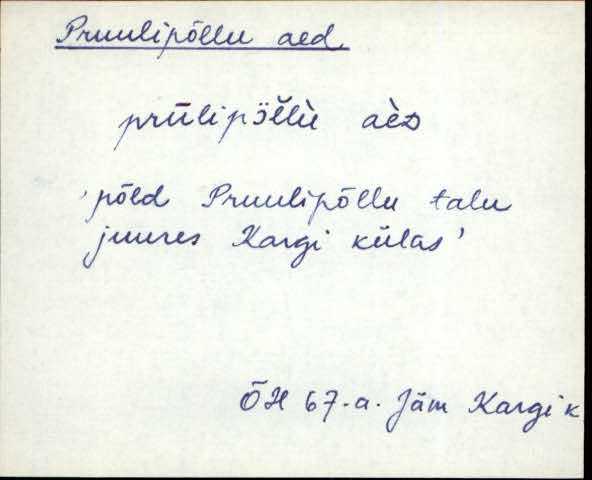 Pruulipõllu aed
prūlipö̆l̆lù aèᴅ
'põld Pruulipõllu talu
juures Kargi külas'
ÕH 67.a. Jäm Kargi k